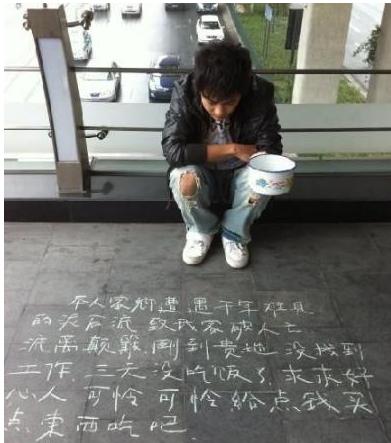 本人家鄉遭遇千年难見
的泥石流 致我家破人亡
流离颠簸.剛到贵地 没找到
工作.三天没吃饭了.求求好
心人 可怜 可怜 给点钱买
点東西吃吧